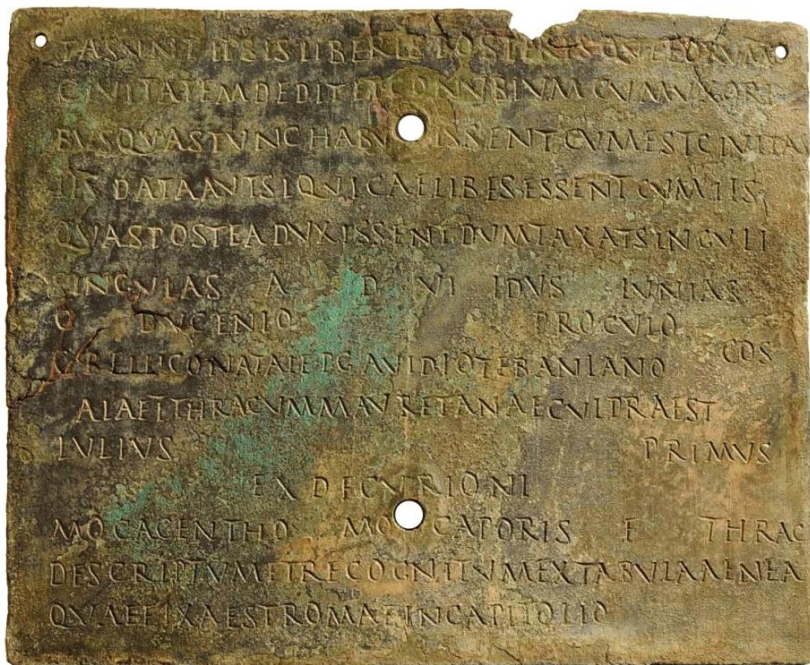 TA SUNT IPSIS LIBERIS POSTERISQUE EORUM
CIVITATEM DEDIT ET CONUBIUM CUM UXORI
BUS QUAS TUNC HABUISSENT CUM EST CIVITAS
IIS DATA AUT SI QUI CAELIBES ESSENT CUM IIS
QUAS POSTEA DUXISSENT DUMTAXAT SINGULI
SINGULAS A D VI IDUS IUNIAS
DUCENIO PROCULO
ET C AVIDIO TEBANIANO COS
ALAE I THRACUM MAURETANAE CUI PRAEST
IULIUS PRIMUS
EX DECURIONI
MOCACENTHO MOCAPORIS F THRAC
DESCRIPTUM ET RECOGNITUM EX TABULA AENEA
QUAE FIXA EST ROMAE IN CAPITOLIO